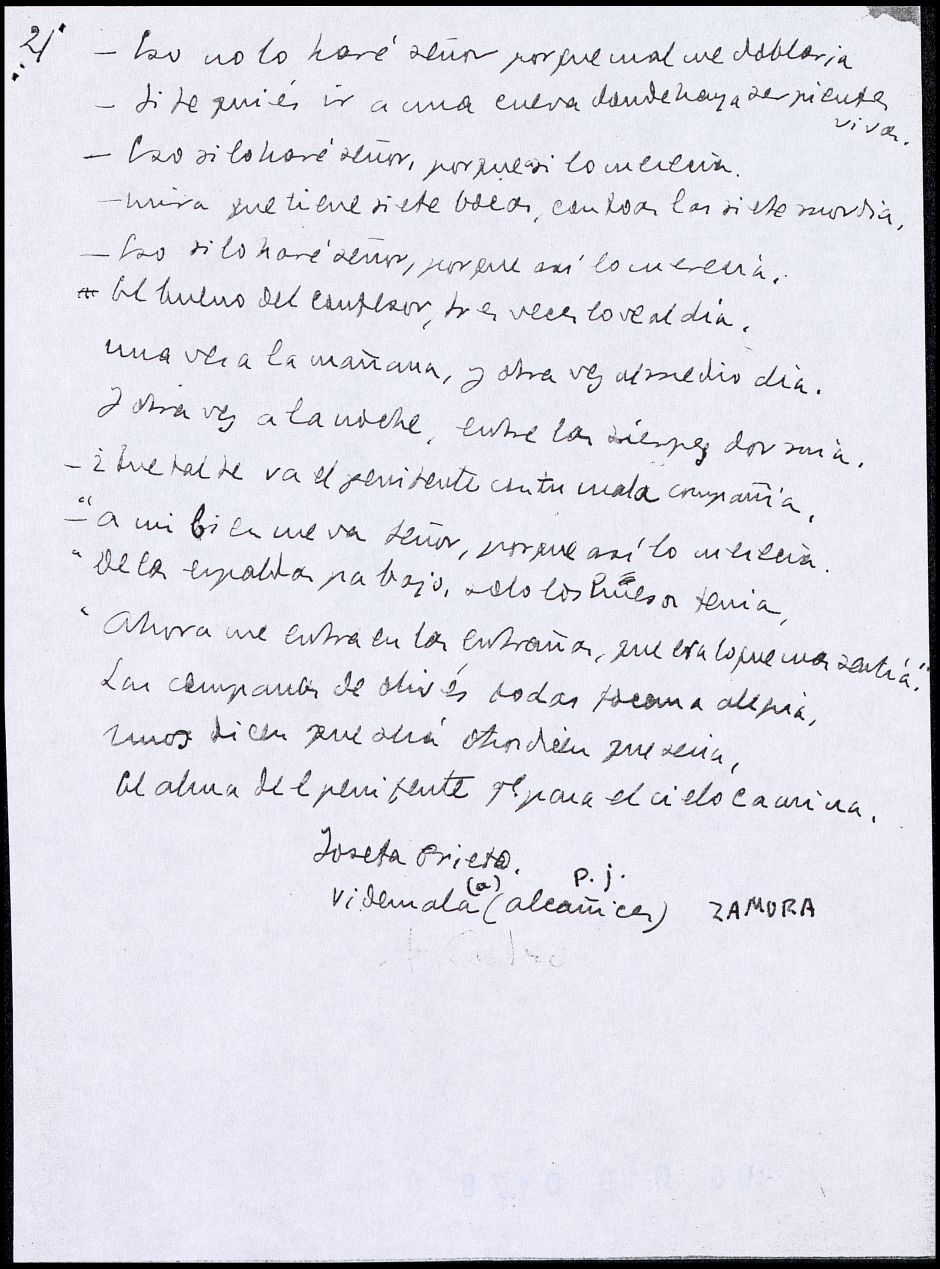 2/
- Eso no lo haré señor porque mal me doblaria
- Si te quiés ir a una cueva donde haya serpientes
vivas.
- Eso si lo haré señor, porque asi lo merecia.
- mira que tiene siete bocas, con todas las siete mordia,
- Eso si lo haré señor, porque así lo merecia.
El bueno del confesor, tres veces lo ve al dia.
una ves a la mañana, y otra vez al medio dia.
y otra vez a la noche, entre las sierpes dormia.
- ¿Que tal te va el penitente con tu mala compañia,
- "a mi bien me va señor, porque así lo merecia.
" De las espaldas pa bajo, solo los huesos tenia,
" Ahora me entra en las entrañas, que era lo que mas sentiá."
Las campanas de olivés todas tocan a alegria,
unos dicen que será otros dicen que seria,
El alma del penitente qe para el cielo camina.
Josefa Prieto.
Videmala (a) (alcañices) p. j. ZAMORA